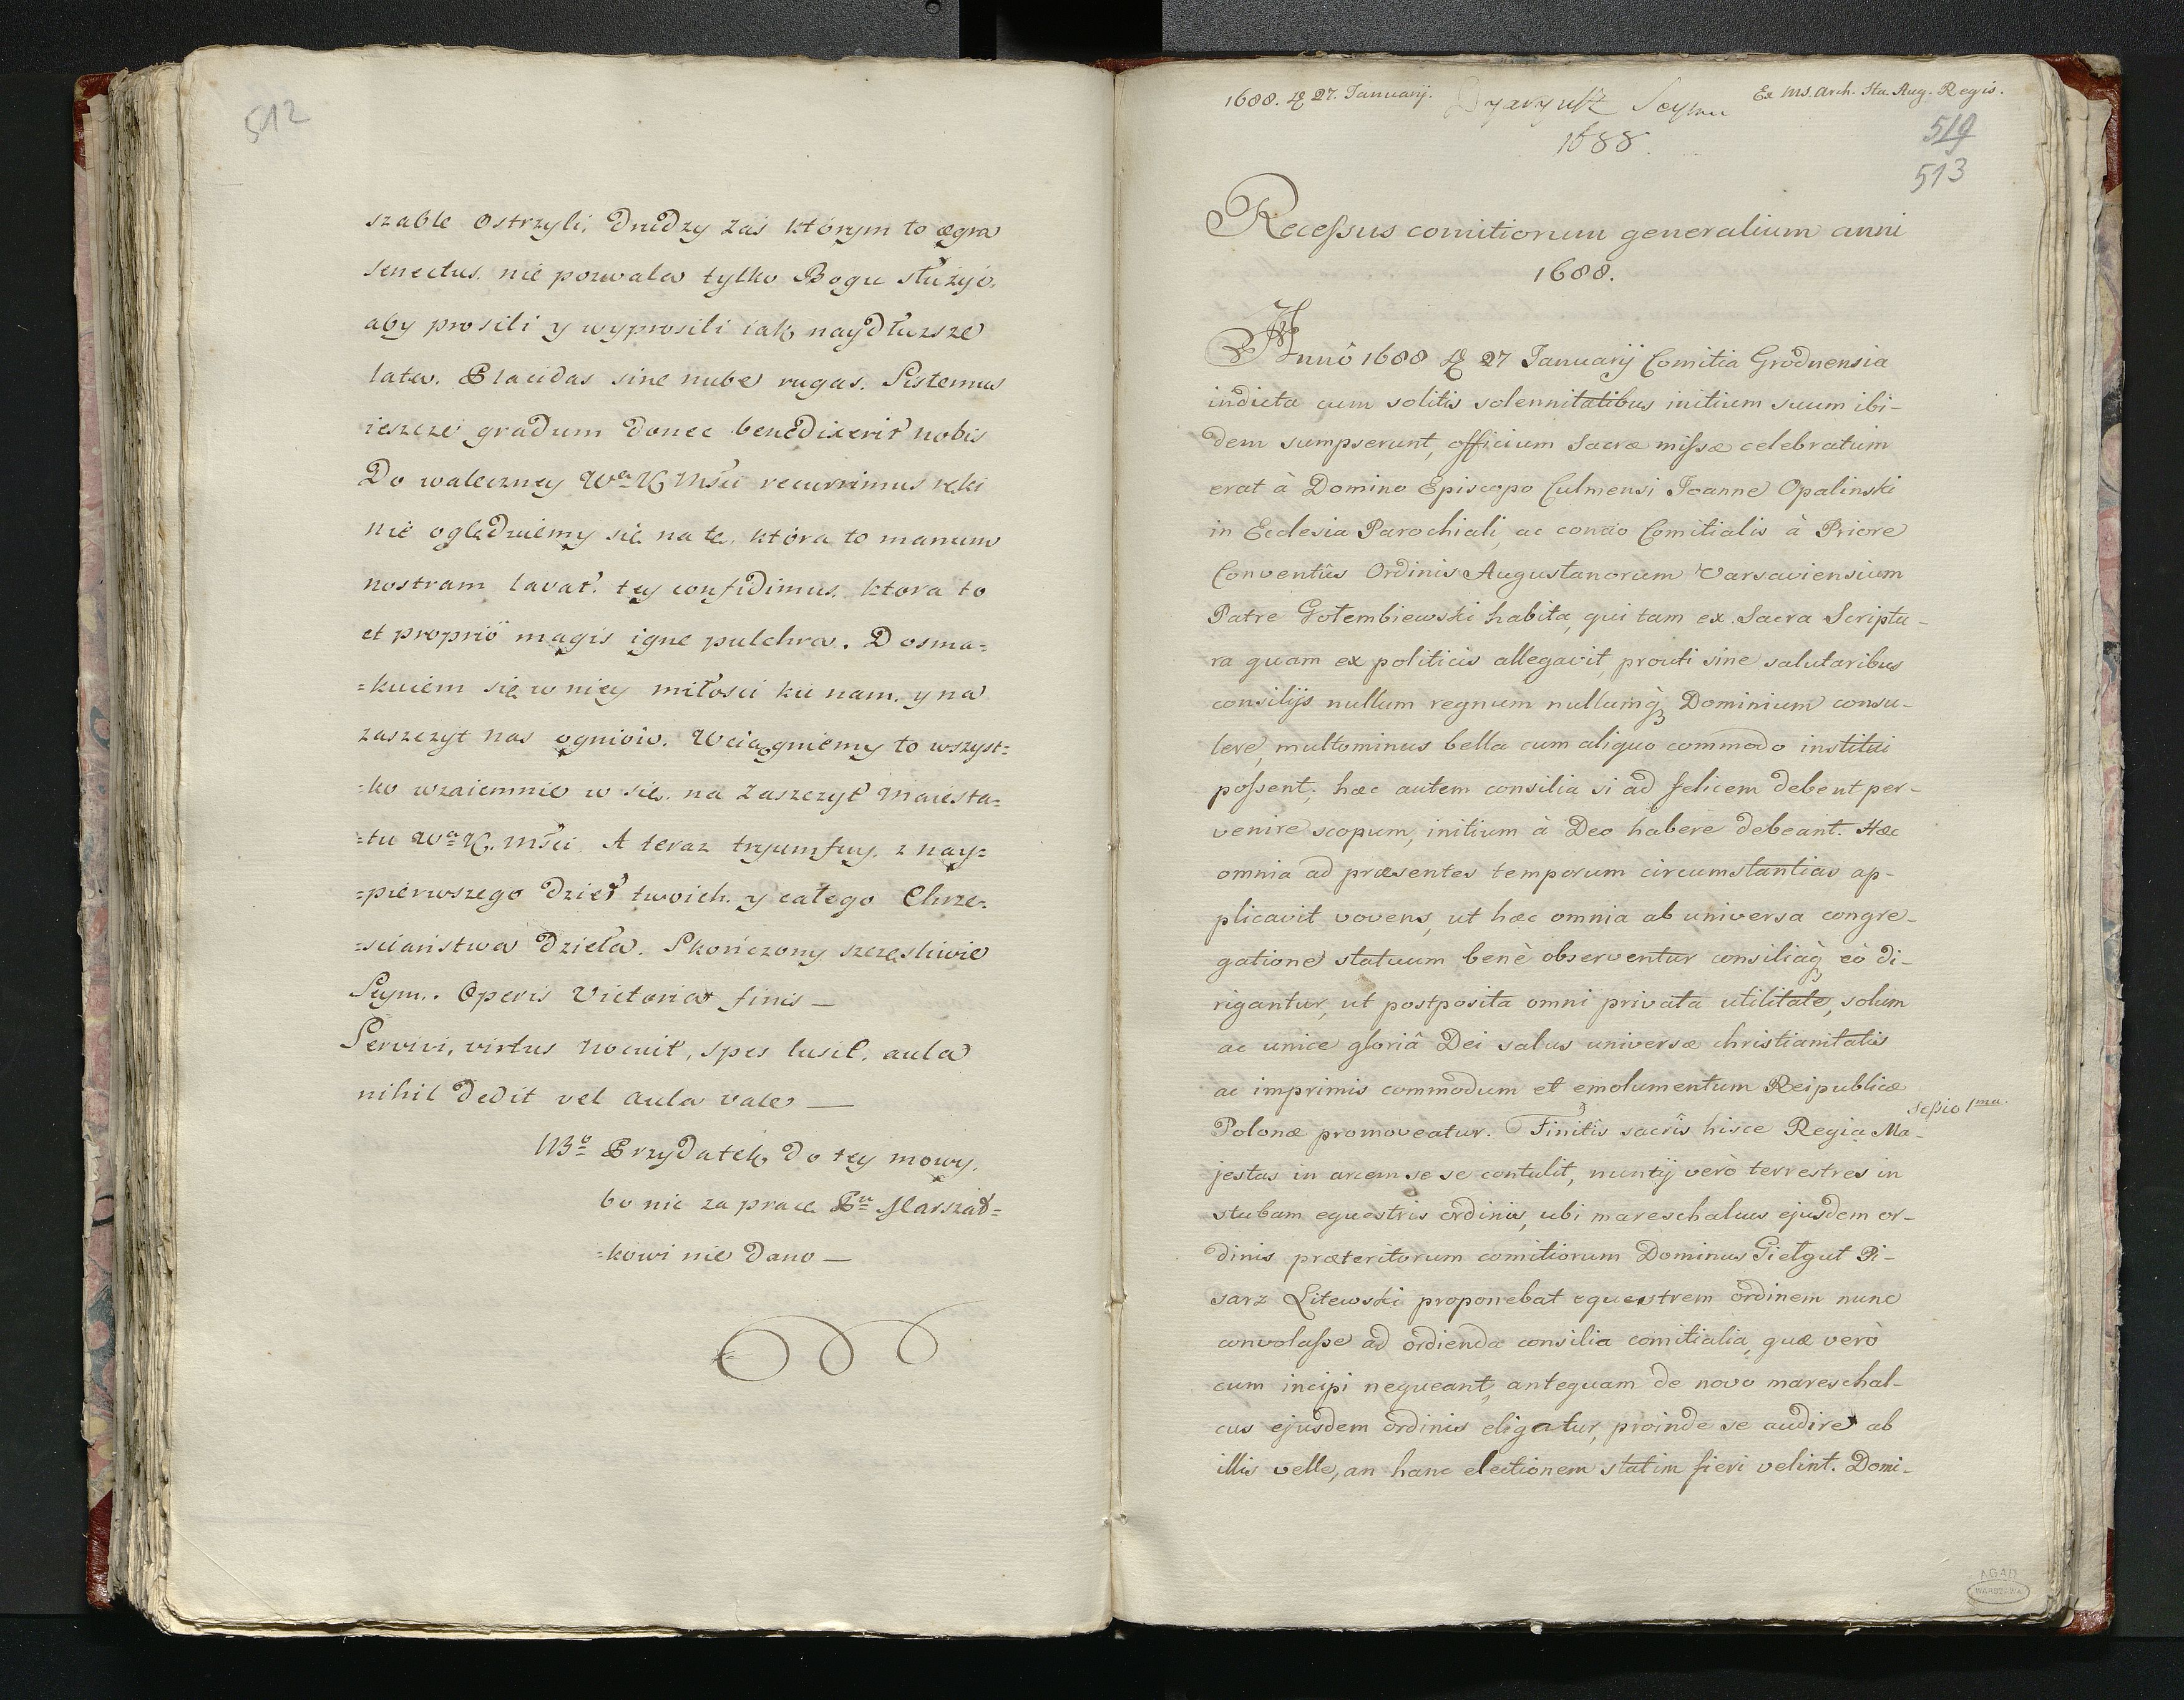 512
szable ostrzyli, Drudzy zas którym to ægra
senectus. nie pozwala tylko Bogu służyć.
aby prosili y wyprosili iak naydłuzsze
lata. Placidas sine nube rugas. Sistemus
ieszcze gradum donec benedixerit nobis
Do waleczney Wa K Mści recurrimus ręki
nie oględuiemy się na tę, która to manum
nostram lavat. tey confidimus. ktora to
et proprió magis igne pulchra. Dosma=
=kuiem się w niey miłości ku nam. y na
zaszczyt nas ogniów. Wciągniemy to wszyst=
=ko wzaiemnie w się. na zaszczyt Maiesta=
=tu Wa K. Mści A teraz tryumfuy. z nay=
=pierwszego dzieł twoich. y całego Chrze=
=sciaństwa dzieła. Skończony szczęsliwie
Seym. Operis Victoria finis —
Servivi, virtus nocuit, spes lusit. aula
nihil dedit vel aula vale —
NBo Przydatek do tey mowy.
bo nic za prace Pu Marszał=
=kowi nie dano —
1688. 27. Januarij.
Dyaryusz Seymu
Ex MS. Arch. Sta. Aug. Regis.
1688.
519
513
Recessus comitiorum generalium anni
1688.
Annô 1688 27 Januarij Comitia Grodnensia
indicta cum solitis solennitatibus initium suum ibi-
dem sumpserunt, officium Sacræ missæ celebratum
erat à Domino Episcopo Culmensi Joanne Opalinski
in Ecclesia Parochiali, ac concio Comitialis à Priore
Conventûs Ordinis Augustanorum Varsaviensium
Patre Gotembiewski habita, qui tam ex Sacra Scriptu-
ra quam ex politicis allegavit, prouti sine salutaribus
consilijs nullum regnum nullumq Dominium consu-
lere, multominus bella cum aliquo commodo institui
possent; hæc autem consilia si ad felicem debent per-
venire scopum, initium à Deo habere debeant. Hæc
omnia ad præsentes temporum circumstantias ap-
plicavit vovens, ut hæc omnia ab universa congre-
gatione statuum benè observentur consiliaq eò di-
rigantur, ut postposita omni privata utilitate, solum
ac unice gloriâ Dei salus universæ christianitatis
ac imprimis commodum et emolumentum Reipublicæ
Sessio 1ma.
Polonæ promoveatur. Finitis sacris hisce Regia Ma-
jestas in arcem se se contulit, nuntij verò terrestres in
stubam equestris ordinis, ubi mareschalus ejusdem or-
dinis præteritorum comitiorum Dominus Gielgut Pi-
sarz Litewski proponebat equestrem ordinem nunc
convolasse ad ordienda consilia comitialia, quæ verò
cum incipi nequeant, antequam de novo mareschal-
cus ejusdem ordinis eligatur, proinde se audire ab
illis velle, an hanc electionem statim fieri velint. Domi-
AGAD
WARSZAWA